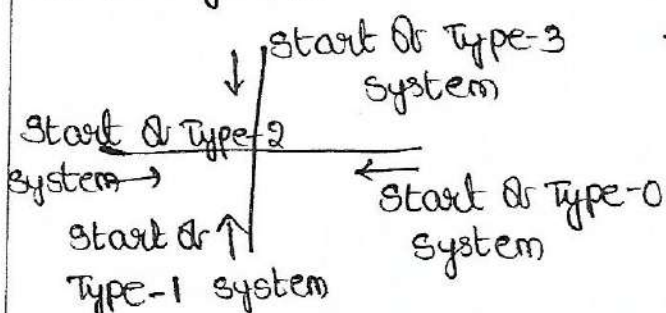 Start of Type-3
system
Start of Type-2
system
Start of Type-0
system
Start of
Type-1 system